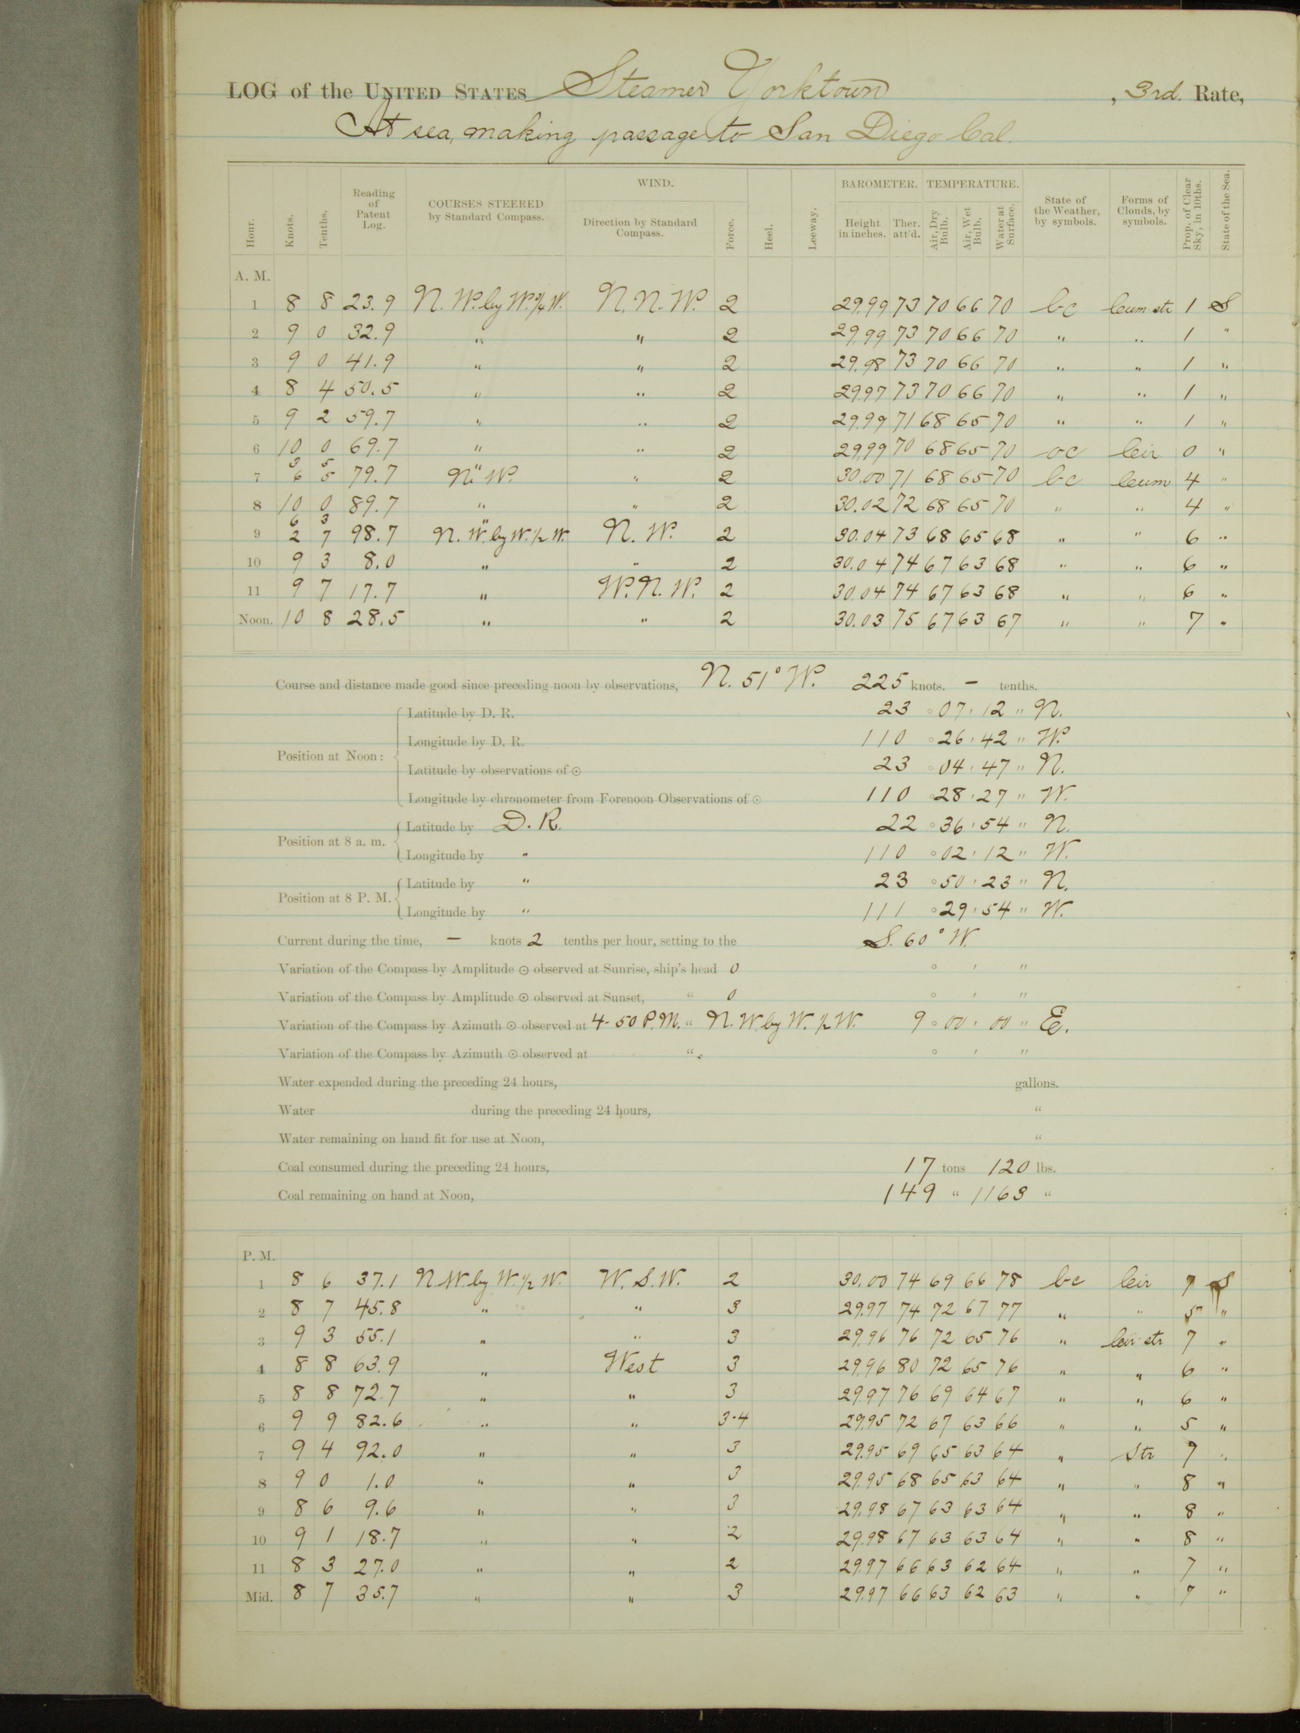 LOG of the UNITED STATES Steamer Yorktown, 3rd. Rate,
At sea, making passage to San Diego Cal.
Hour. Knots. Tenths. Reading of Patent Log. COURSES STEERED by Standard Compass. WIND. Direction by Standard Compass. Force. Heel. Leeway. BAROMETER. Height in inches. Ther. att'd. TEMPERATURE. Air, Dry Bulb. Air, Wet Bulb. Water at Surface. State of the Weather, by symbols. Forms of Clouds, by symbols. Prop. of Clear Sky, in 10ths. State of the Sea.
A. M.
1 8 8 23.9 N. W. by W. ½ W. N. N. W. 2 29.99 73 70 66 70 bc Cum str 1 S
2 9 0 32.9 " " 2 29.99 73 70 66 70 " " 1 "
3 9 0 41.9 " " 2 29.98 73 70 66 70 " " 1 "
4 8 4 50.5 " " 2 29.97 73 70 66 70 " " 1 "
5 9 2 59.7 " " 2 29.99 71 68 65 70 " " 1 "
6 10 0 69.7 " " 2 29.99 70 68 65 70 oc Cir 0 "
3 5
7 6 5 79.7 N. W. " 2 30.00 71 68 65 70 bc Cum 4 "
8 10 0 89.7 " " 2 30.02 72 68 65 70 " " 4 "
6 3
9 2 7 98.7 N. W. by W. ½ W. N. W. 2 30.04 73 68 65 68 " " 6 "
10 9 3 8.0 " " 2 30.04 74 67 63 68 " " 6 "
11 9 7 17.7 " W. N. W. 2 30.04 74 67 63 68 " " 6 "
Noon. 10 8 28.5 " " 2 30.03 75 67 63 67 " " 7 "
Course and distance made good since preceding noon by observations, N. 51° W. 225 knots. – tenths.
Position at Noon: Latitude by D. R. 23 ° 07 ' 12 " N.
Longitude by D. R. 110 ° 26 ' 42 " W.
Latitude by observations of ☉ 23 ° 04 ' 47 " N.
Longitude by chronometer from Forenoon Observations of ☉ 110 ° 28 ' 27 " W.
Position at 8 a. m. Latitude by D. R. 22 ° 36 ' 54 " N.
Longitude by " 110 ° 02 ' 12 " W.
Position at 8 P. M. Latitude by " 23 ° 50 ' 23 " N.
Longitude by " 111 ° 29 ' 54 " W.
Current during the time, – knots 2 tenths per hour, setting to the S. 60° W.
Variation of the Compass by Amplitude ☉ observed at Sunrise, ship's head 0 ° ' "
Variation of the Compass by Amplitude ☉ observed at Sunset, " 0 ° ' "
Variation of the Compass by Azimuth ☉ observed at 4-50 P.M. " N. W. by W. ½ W. 9 ° 00 ' 00 " E.
Variation of the Compass by Azimuth ☉ observed at " ° ' "
Water expended during the preceding 24 hours, gallons.
Water during the preceding 24 hours, "
Water remaining on hand fit for use at Noon, "
Coal consumed during the preceding 24 hours, 17 tons 120 lbs.
Coal remaining on hand at Noon, 149 " 1163 "
P. M.
1 8 6 37.1 N. W. by W. ½ W. W. S. W. 2 30.00 74 69 66 78 bc Cir 7 S
2 8 7 45.8 " " 3 29.97 74 72 67 77 " " 5 "
3 9 3 55.1 " " 3 29.96 76 72 65 76 " Cir-str 7 "
4 8 8 63.9 " West 3 29.96 80 72 65 76 " " 6 "
5 8 8 72.7 " " 3 29.97 76 69 64 67 " " 6 "
6 9 9 82.6 " " 3-4 29.95 72 67 63 66 " " 5 "
7 9 4 92.0 " " 3 29.95 69 65 63 64 " Str 7 "
8 9 0 1.0 " " 3 29.95 68 65 63 64 " " 8 "
9 8 6 9.6 " " 3 29.98 67 63 63 64 " " 8 "
10 9 1 18.7 " " 2 29.98 67 63 63 64 " " 8 "
11 8 3 27.0 " " 2 29.97 66 63 62 64 " " 7 "
Mid. 8 7 35.7 " " 3 29.97 66 63 62 63 " " 7 "